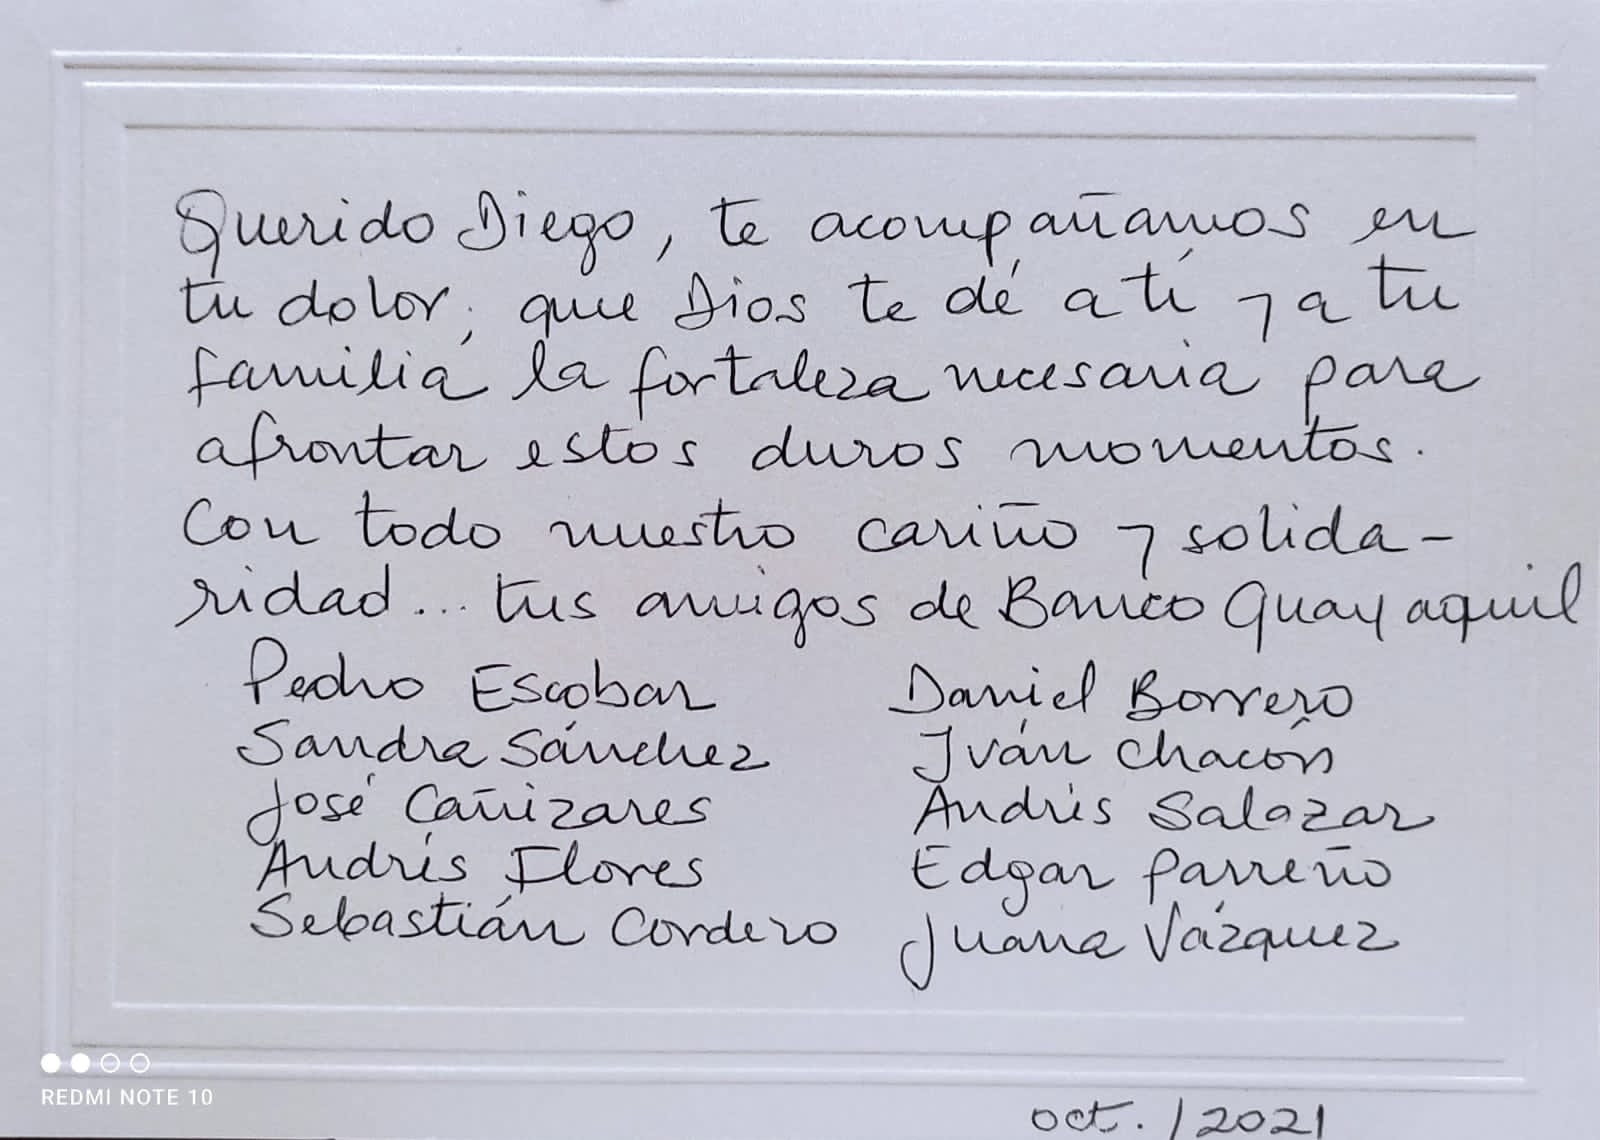 Querido Diego, te acompañamos en
tu dolor; que Dios te dé a tí y a tu
familia la fortaleza necesaria para
afrontar estos duros momentos.
Con todo nuestro cariño y solida-
ridad... tus amigos de Banco Guayaquil
Pedro Escobar
Sandra Sánchez
José Cañizares
Andrés Flores
Sebastián Cordero
Daniel Borrero
Iván Chacón
Andrés Salazar
Edgar Parreño
Juana Vázquez
oct. / 2021
REDMI NOTE 10